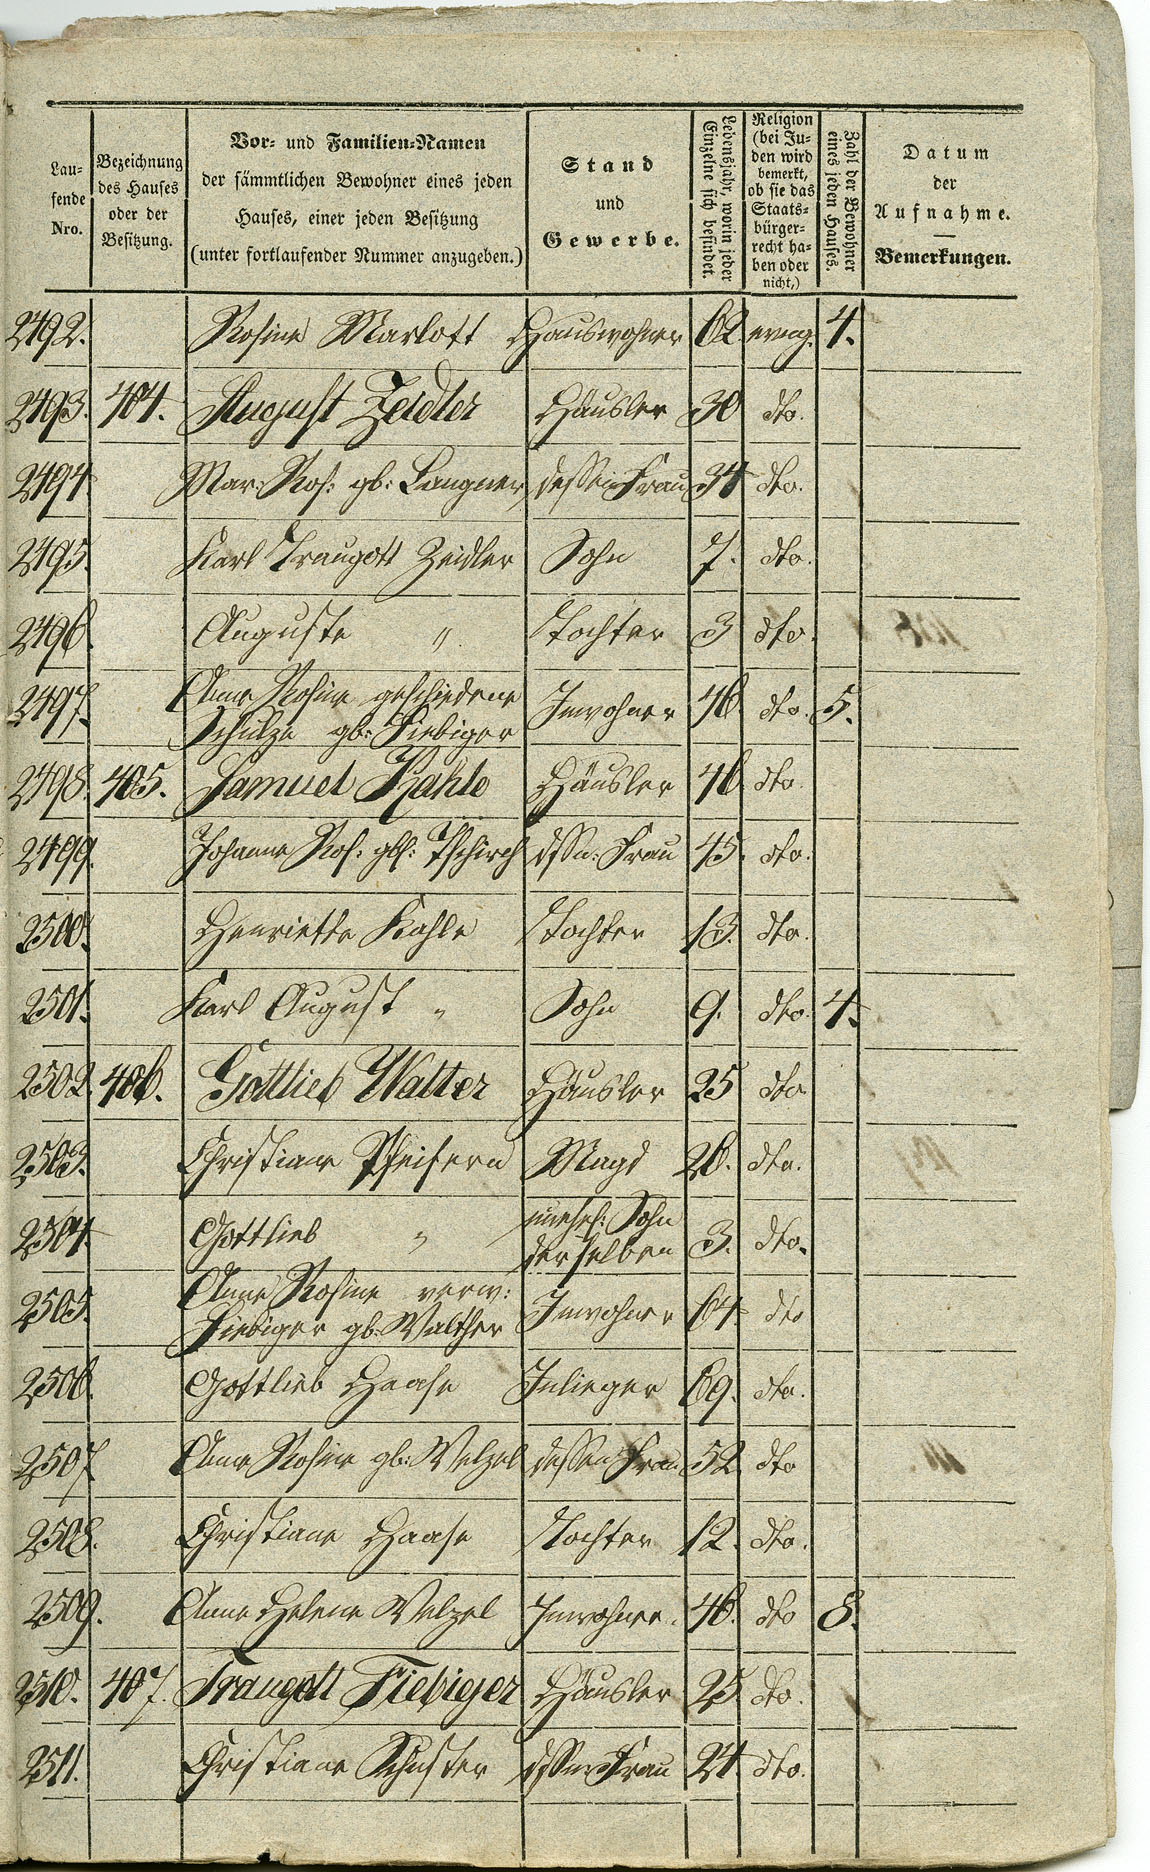 Lau-
fende
Nro.
Bezeichnung
des Hauses
oder der
Besitzung.
Vor- und Familien-Namen
der sämmtlichen Bewohner eines jeden
Hauses, einer jeden Besitzung
(unter fortlaufender Nummer anzugeben.)
Stand
und
Gewerbe.
Lebensjahr, worin jeder
Einzelne sich befindet.
Religion
(bei Ju-
den wird
bemerkt,
ob sie das
Staats-
bürger-
recht ha-
ben oder
nicht,)
Zahl der Bewohner
eines jeden Hauses.
Datum
der
Aufnahme.
Bemerkungen.
2492. Rosina Marlott Hauswohner 62. evang. 4.
2493. 404. August Zeidler Häusler 30 dto.
2494. Mar: Ros: gb: Langner dessen Frau 34 dto.
2495. Karl Traugott Zeidler Sohn 7. dto.
2496. Auguste " Tochter 3 dto.
2497. Anna Rosina geschiedene
Schulze gb: Fiebiger Inwohner 46 dto. 5.
2498. 405. Samuel Kahle Häusler 46 dto.
2499. Johanna Ros: gb: Tschirch dssn: Frau 45. dto.
2500. Henriette Kahle Tochter 13. dto.
2501. Karl August " Sohn 9. dto. 4.
2502. 406. Gottlieb Walter Häusler 25 dto
2503. Christiane Pfeifern Magd 26. dto.
2504. Gottlieb " unehel: Sohn
derselben 3. dto.
2505. Anna Rosina verw:
Fiebiger gb: Walther Inwohner 64 dto
2506. Gottlieb Haase Inlieger 69. dto.
2507 Anna Rosina gb: Welzel dessen Frau 52 dto
2508. Christiane Haase Tochter 12. dto.
2509. Anna Helena Welzel Inwohner. 46. dto 8.
2510. 407. Traugott Fiebiger Häusler 25 dto.
2511. Christiane Schuster dssen Frau 24. dto.